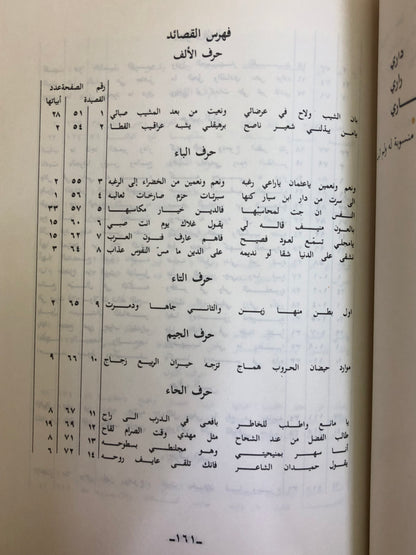 فهرس القصائد
حرف الألف
رقم القصيدة الصفحة عدد أبياتها
بان الشيب ولاح في عرضاني ونعيت من بعد المشيب صباني ١ ٥١ ٢٨
يا من يدلني شعير ناصح يشبه عراقيب القطا ٢ ٥٤ ٢
حرف الباء
ونعم ونعمين ياعثمان ياراعي رغبه ونعم ونعمين من الخضراء إلى الرغبه ٣ ٥٥ ٢
الى سرت من دار ابن سيار كنها سبرتات حزم صارخات ثعالبه ٤ ٥٦ ١
النفس ان جت لمحاسبها فالدين خيار مكاسبها ٥ ٥٧ ٣٣
بالعون منيف قاله لي يقول غلاك يوم انت صبي ٦ ٦٠ ١٥
يامجلي تسمع لعود فصيح فاهم عارف فنون العرب ٧ ٦٢ ١٥
نشفى على الدنيا شقا لو نديمه على الدين ما مسّ النفوس عذاب ٨ ٦٤ ٣
حرف التاء
اول بطن منها زين والثاني جاها ودمرت ٩ ٦٥ ٢
حرف الجيم
موارد حيضان الحروب هماج نزحه حيران الربيع زجاج ١٠ ٦٦ ٩
حرف الحاء
يا مانع واطلب للخاطر يافعى في الدرب الى راح ١١ ٦٧ ٨
طالب الفضل من عند الشحاح مثل مهدي وقت الصرام لقاح ١٢ ٦٩ ١٩
أنا سهر بمنيحتي وهو مجلنطي بسطوحه ١٣ ٧١ ٨
يقول حميدان الشاعر فانك تلقى عايف روحه ١٤ ٧٢ ٦
ـ١٦١ـ
داري
زاري
ـاري
منسوبة له